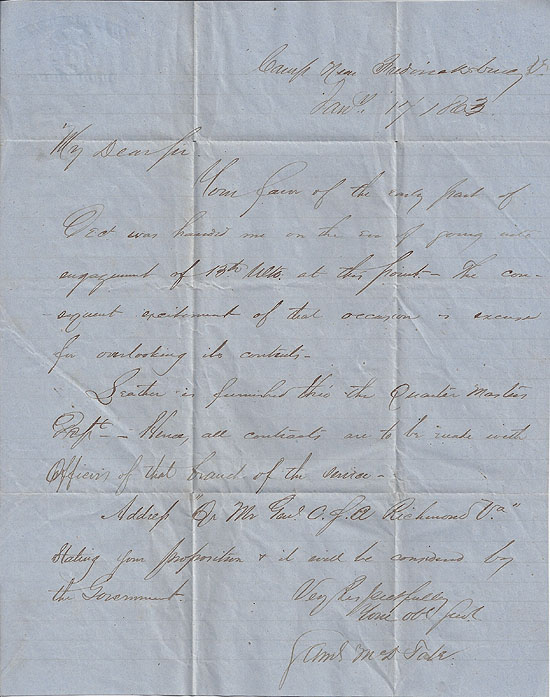 Camp Near Fredericksburg Va
Jany. 17 1863
My Dear Sir
Your favor of the early part of
Dect was handed me on the eve of going into
engagement of 13th Ulto. at this point - The con-
-sequent excitement of that occasion is excuse
for overlooking its contents -
Leather is furnished thro the Quarter Masters
Dept - Hence, all contracts are to be made with
Officers of that branch of the service -
Address "Qr Mr Genl. C. S. A Richmond Va"
Stating your proposition & it will be considered by
the Government.
Very Respectfully
Your Obt Servt
Saml McD Tate